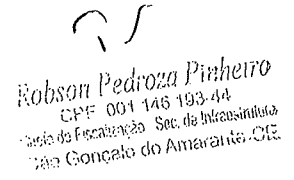 Robson Pedroza Pinheiro
CPF 001 146 193-44
de Fiscalização Sec. da Infraestrutura
São Gonçalo do Amarante-CE